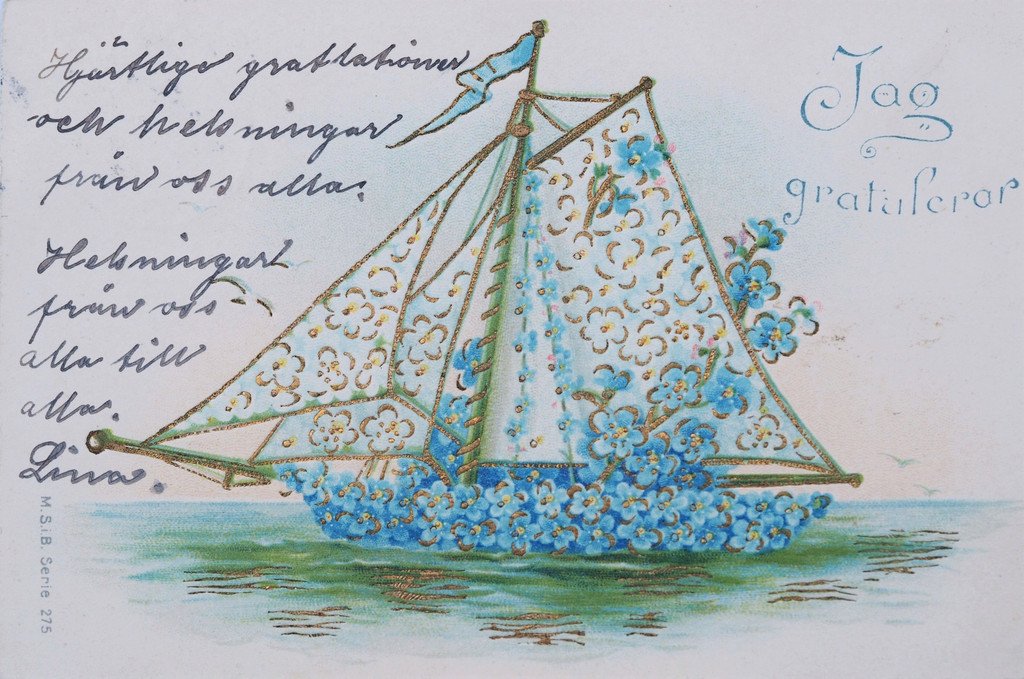 Hjärtliga grattlationer
och helsningar
från oss alla.
Helsningar
från oss
alla till
alla.
Lina.
Jag
gratulerar
M.S.i.B. Serie 275